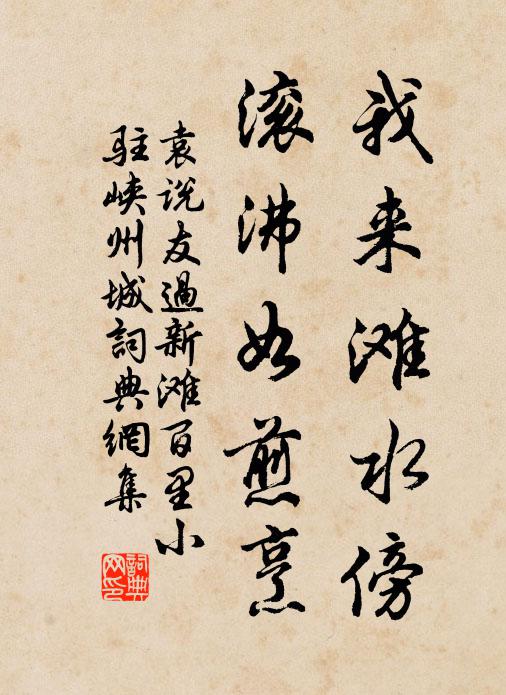 我来滩水傍
滚沸如煎烹
袁说友過新滩百里小
驻峡州城詞典網集
詞典
网印